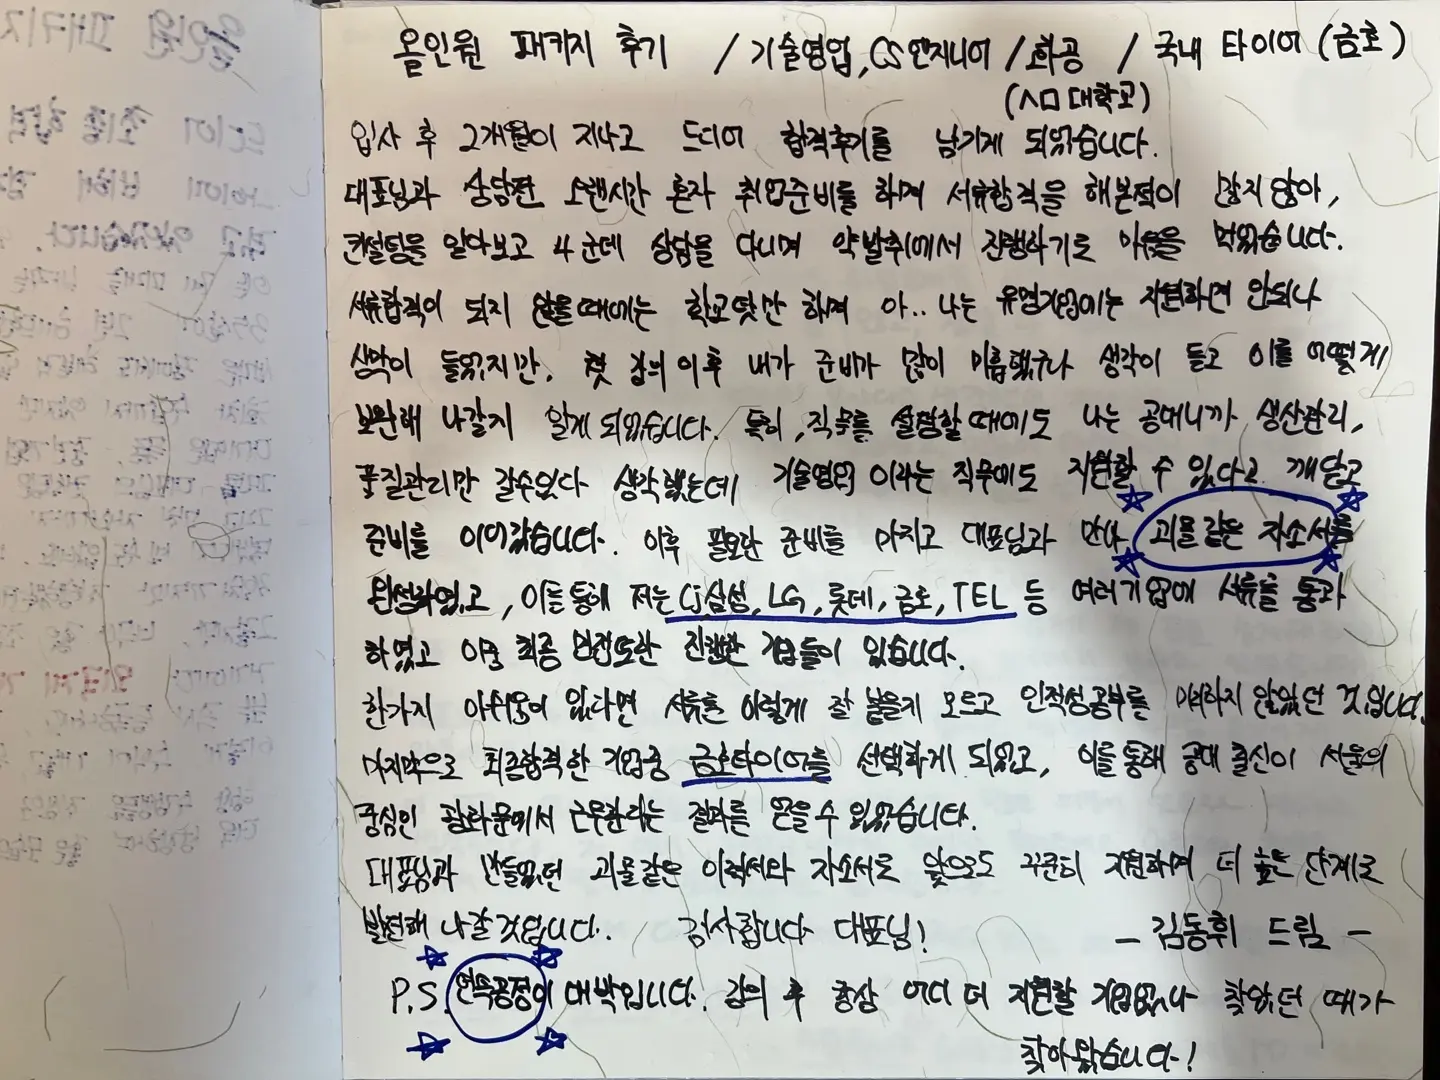 올인원 패키지 후기 / 기술영업, CS엔지니어 / 화공 / 국내 타이어 (금호)
(ㅅㅁ대학교)
입사 후 2개월이 지나고 드디어 합격후기를 남기게 되었습니다.
대표님과 상담전 오랜시간 혼자 취업준비를 하며 서류합격을 해본적이 많지 않아,
컨설팅을 알아보고 4군데 상담을 다니며 약발취에서 진행하기로 마음을 먹었습니다.
서류합격이 되지 않을때에는 학교탓만 하며 아.. 나는 유명기업에는 지원하면 안되나
생각이 들었지만, 첫 강의 이후 내가 준비가 많이 미흡했구나 생각이 들고 이를 어떻게
보완해 나갈지 알게 되었습니다. 특히, 직무를 설정할때에도 나는 공대니까 생산관리,
품질관리만 갈수있다 생각했는데 기술영업 이라는 직무에도 지원할 수 있다고 깨닫고
준비를 이어갔습니다. 이후 필요한 준비를 마치고 대표님과 만나 괴물같은 자소서를
완성하였고, 이를 통해 저는 CJ, 삼성, LG, 롯데, 금호, TEL 등 여러기업에 서류를 통과
하였고 이중 최종 면접또한 진행한 기업들이 있습니다.
한가지 아쉬움이 있다면 서류는 이렇게 잘 붙을지 모르고 인적성공부를 미리하지 않았던 것입니다.
마지막으로 최종합격한 기업중 금호타이어를 선택하게 되었고, 이를 통해 공대 출신이 서울의
중심인 광화문에서 근무한다는 결과를 얻을 수 있었습니다.
대표님과 만들었던 괴물같은 이력서와 자소서로 앞으로도 꾸준히 지원하며 더 높은 단계로
발전해 나갈 것입니다. 감사합니다 대표님! - 김동휘 드림 -
P.S. 연속공정이 대박입니다. 강의 후 항상 어디 더 지원할 기업없나 찾았던 때가
찾아왔습니다!